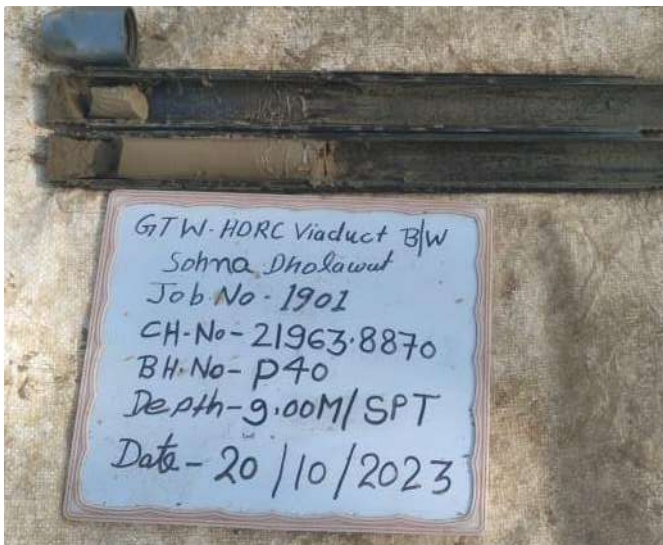 GTW-HORC Viaduct B/W
Sohna Dholawat
Job No - 1901
CH-No-21963.8870
BH.No-P40
Depth-9.00M/SPT
Date-20/10/2023